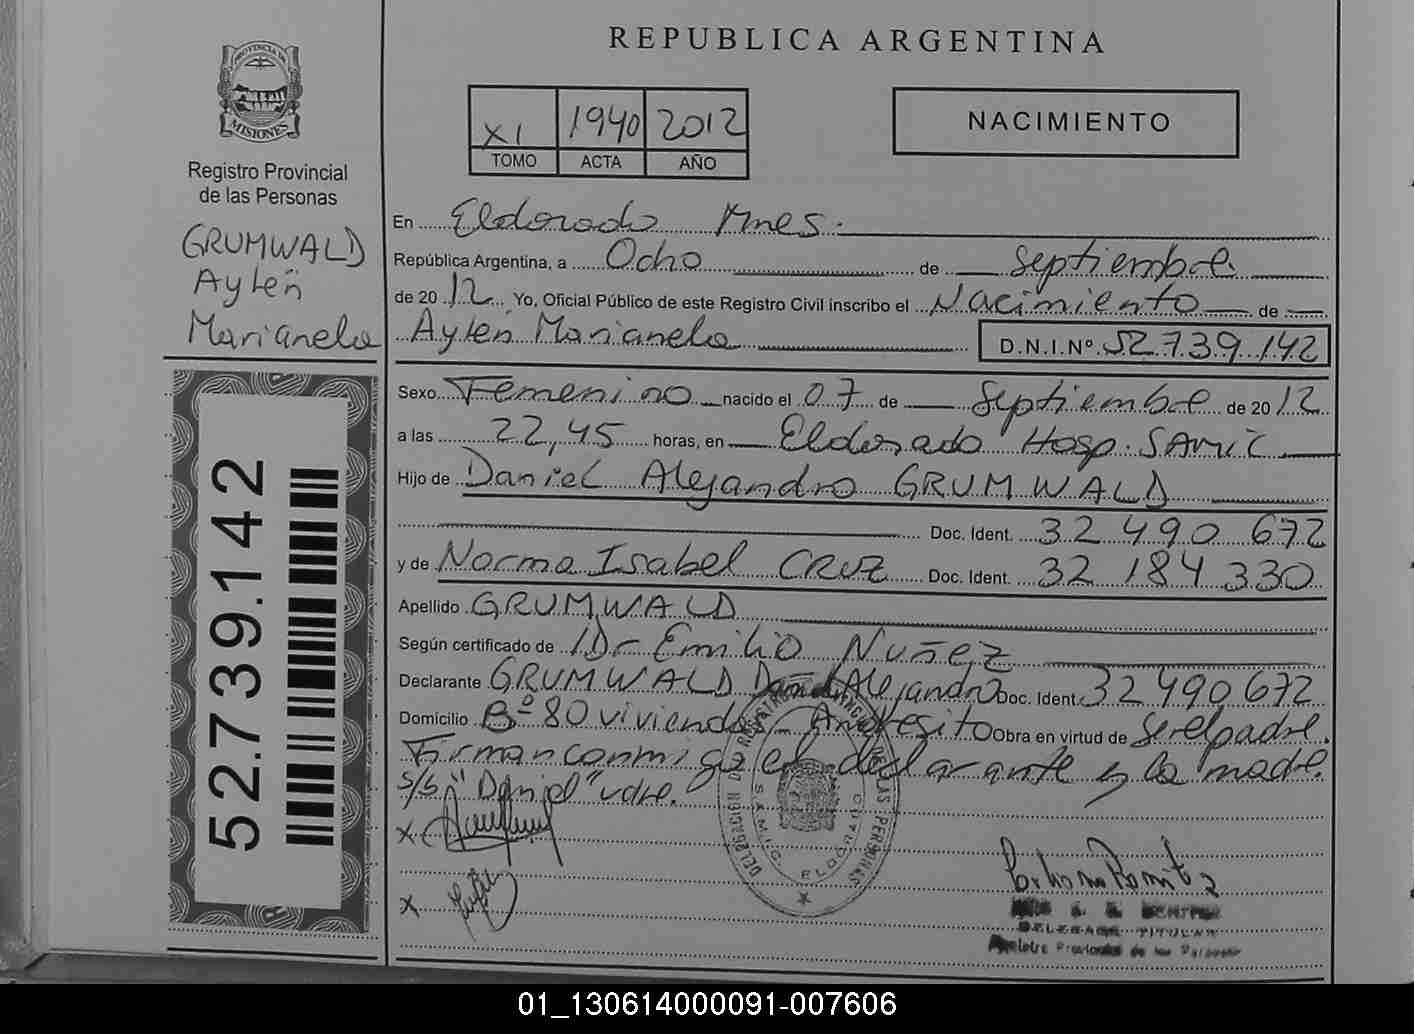 REPUBLICA ARGENTINA
PROVINCIA DE
MISIONES
Registro Provincial
de las Personas
GRUMWALD
Aylén
Marianela
XI 1940 2012
TOMO ACTA AÑO
NACIMIENTO
En Eldorado Mnes.
República Argentina, a Ocho de septiembre
de 2012 Yo, Oficial Público de este Registro Civil inscribo el Nacimiento de
Aylén Marianela D.N.I.Nº. 52.739.142
Sexo Femenino nacido el 07 de septiembre de 2012
a las 22,45 horas, en Eldorado Hosp. SAMIC
Hijo de Daniel Alejandro GRUMWALD
Doc. Ident. 32 490 672
y de Norma Isabel CRUZ Doc. Ident. 32 184 330
Apellido GRUMWALD
Según certificado de Dr Emilio Nuñez
Declarante GRUMWALD Daniel Alejandro Doc. Ident. 32 490 672
Domicilio Bº 80 viviendas - Andresito Obra en virtud de ser el padre.
Firman conmigo el declarante y la madre.
s/b "Daniel" vale.
x
x
52.739.142
DELEGACION DEL REGISTRO PROVINCIAL DE LAS PERSONAS
S.A.M.I.C. ELDORADO
DELEGADA TITULAR
Registro Provincial de las Personas
01_130614000091-007606